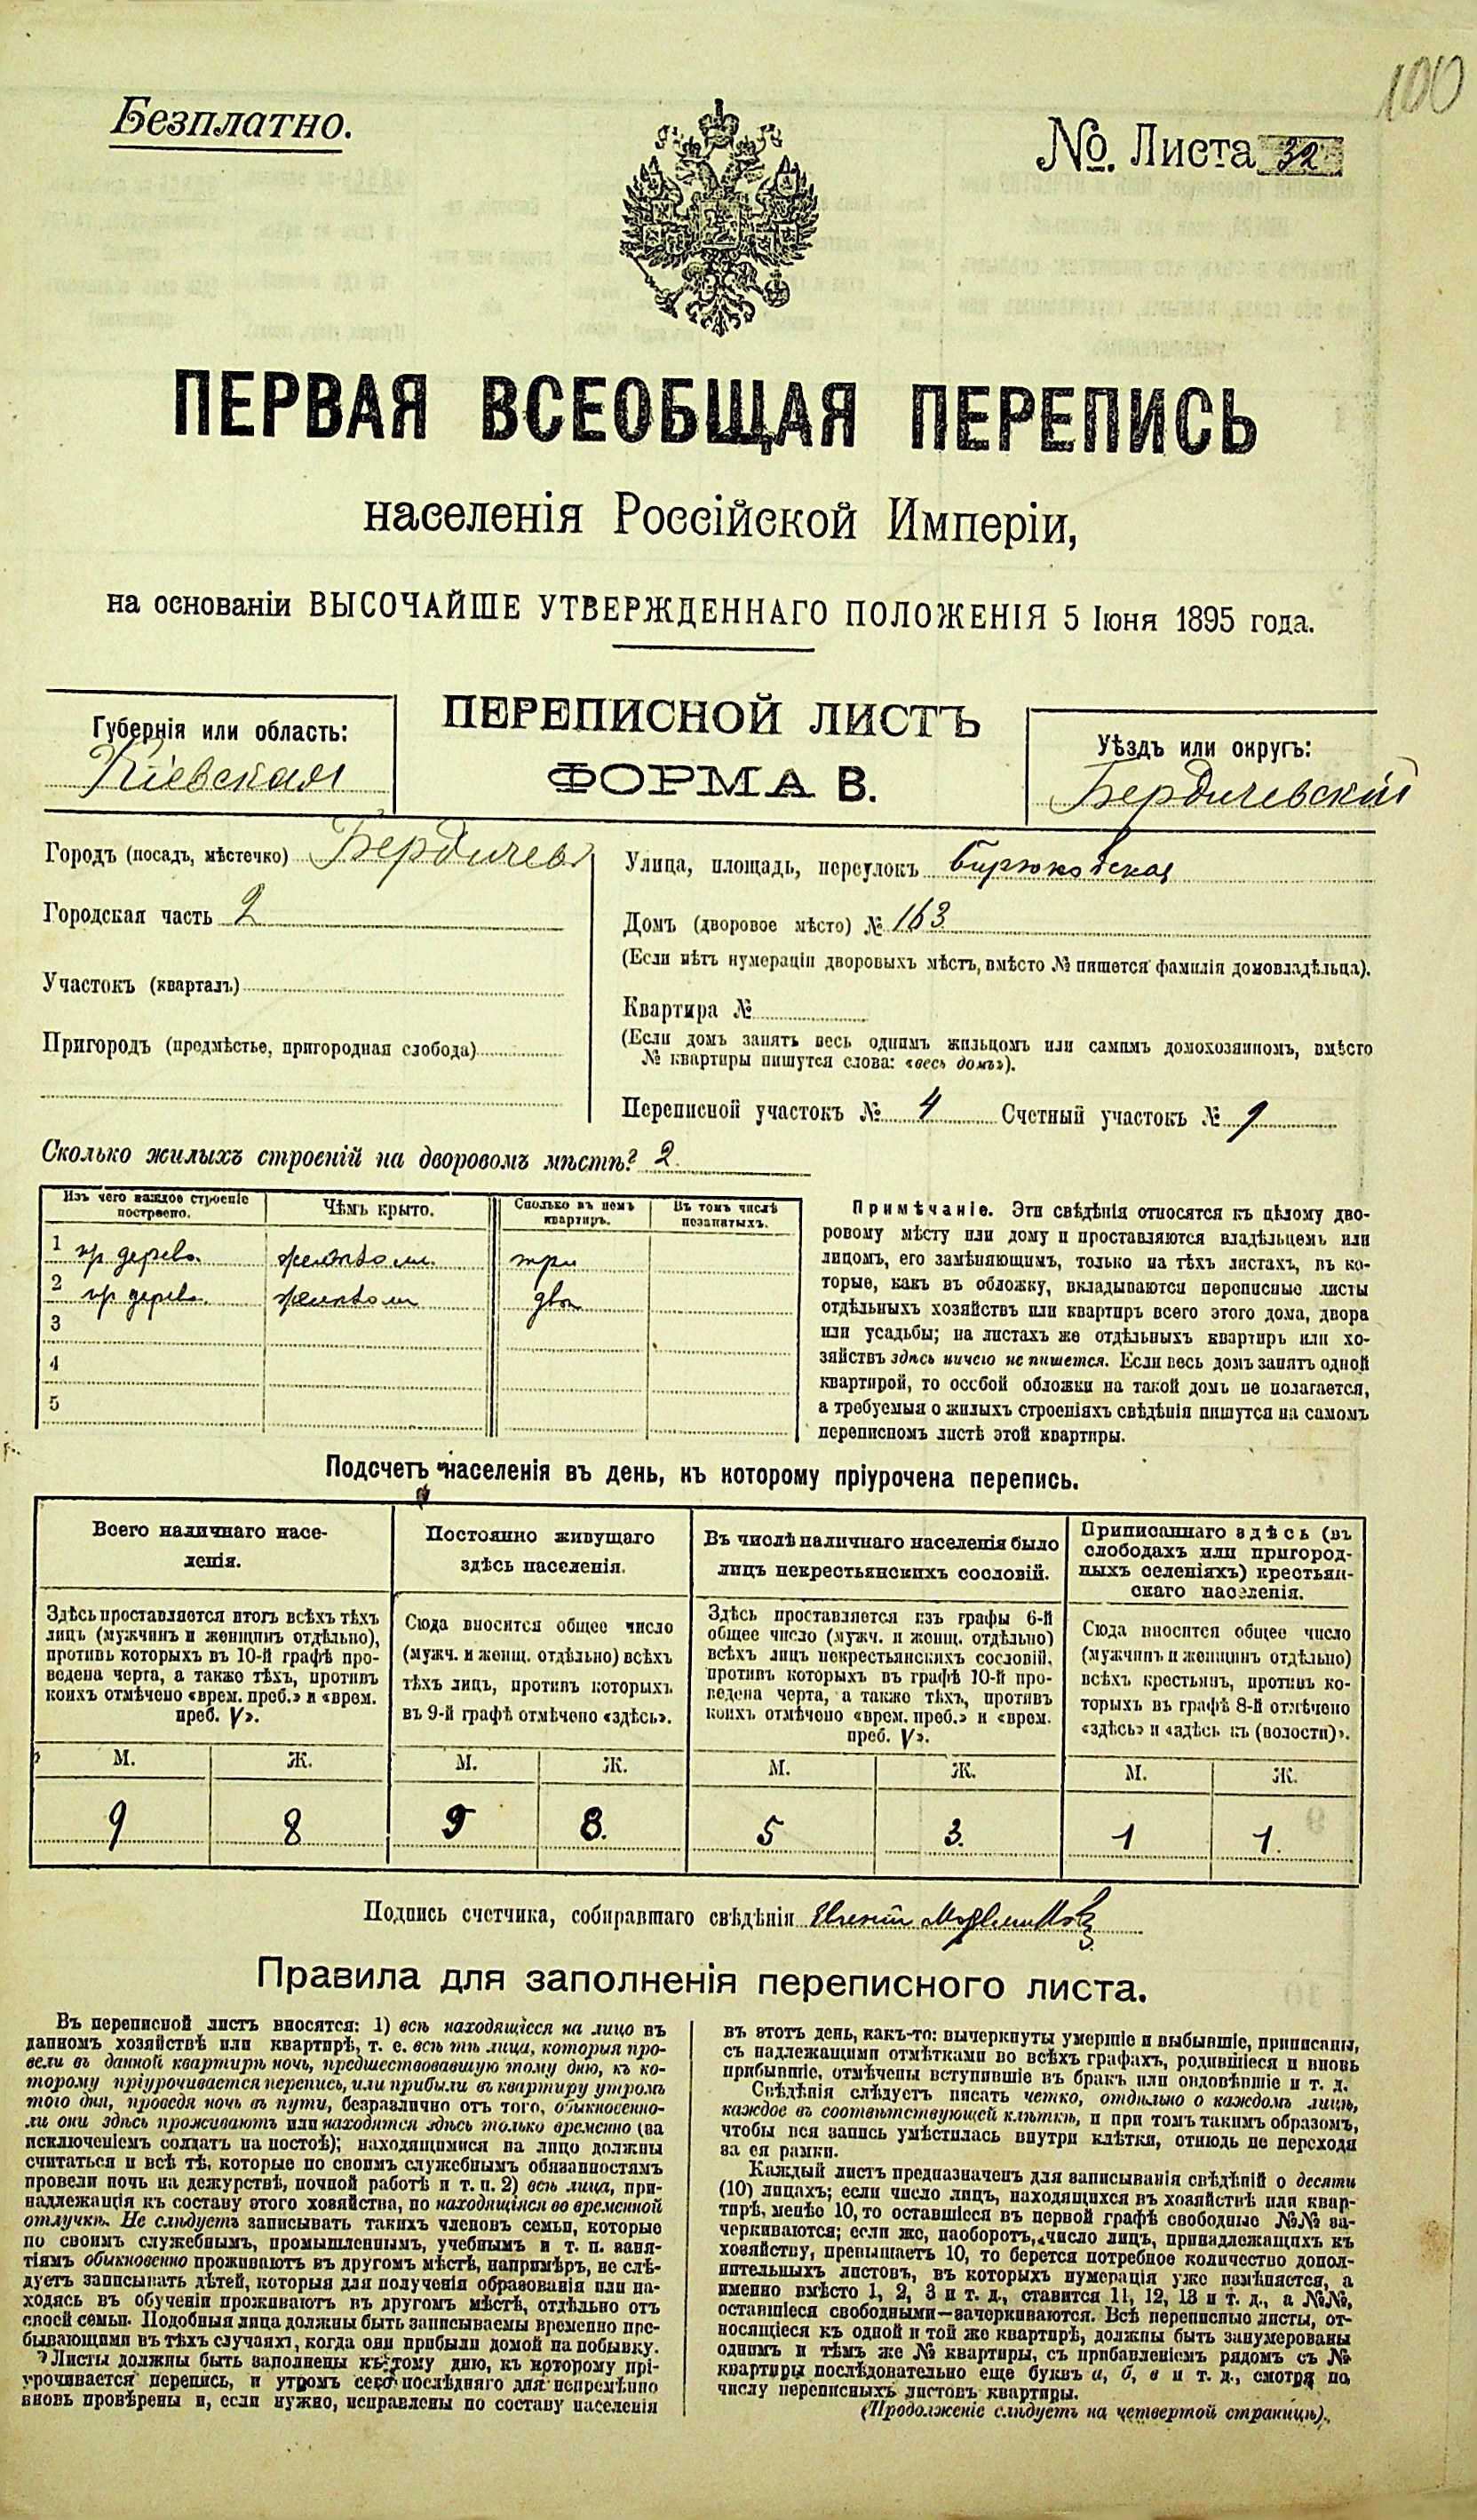 100
Безплатно.
№. Листа 32
ПЕРВАЯ ВСЕОБЩАЯ ПЕРЕПИСЬ
населенія Россійской Имперіи,
на основаніи ВЫСОЧАЙШЕ УТВЕРЖДЕННАГО ПОЛОЖЕНІЯ 5 Іюня 1895 года.
Губернія или область:
Кіевская
ПЕРЕПИСНОЙ ЛИСТЪ
ФОРМА В.
Уѣздъ или округъ:
Бердичевскій
Городъ (посадъ, мѣстечко) Бердичев
Городская часть 2
Участокъ (кварталъ)
Пригородъ (предмѣстье, пригородная слобода)
Улица, площадь, переулокъ Бирюковская
Домъ (дворовое мѣсто) № 163
(Если нѣтъ нумераціи дворовыхъ мѣстъ, вмѣсто № пишется фамилія домовладѣльца).
Квартира №
(Если домъ занятъ весь однимъ жильцомъ или самимъ домохозяиномъ, вмѣсто
№ квартиры пишутся слова: «весь домъ»).
Переписной участокъ № 4 Счетный участокъ № 9
Сколько жилыхъ строеній на дворовомъ мѣстѣ? 2
Изъ чего каждое строеніе
построено.
Чѣмъ крыто.
Сколько въ немъ
квартиръ.
Въ томъ числѣ
незанятыхъ.
1 дерев. три
2 дерев. две
3
4
5
Примѣчаніе. Эти свѣдѣнія относятся къ цѣлому дво-
ровому мѣсту или дому и проставляются владѣльцемъ или
лицомъ, его замѣняющимъ, только на тѣхъ листахъ, въ ко-
торые, какъ въ обложку, вкладываются переписные листы
отдѣльныхъ хозяйствъ или квартиръ всего этого дома, двора
или усадьбы; на листахъ же отдѣльныхъ квартиръ или хо-
зяйствъ здѣсь ничего не пишется. Если весь домъ занятъ одной
квартирой, то особой обложки на такой домъ не полагается,
а требуемыя о жилыхъ строеніяхъ свѣдѣнія пишутся на самомъ
переписномъ листѣ этой квартиры.
Подсчетъ населенія въ день, къ которому пріурочена перепись.
Всего наличнаго насе-
ленія.
Постоянно живущаго
здѣсь населенія.
Въ числѣ наличнаго населенія было
лицъ некрестьянскихъ сословій.
Приписаннаго здѣсь (въ
слободахъ или пригород-
ныхъ селеніяхъ) крестьян-
скаго населенія.
Здѣсь проставляется итогъ всѣхъ тѣхъ
лицъ (мужчинъ и женщинъ отдѣльно),
противъ которыхъ въ 10-й графѣ про-
ведена черта, а также тѣхъ, противъ
коихъ отмѣчено «врем. преб.» и «врем.
преб. V».
Сюда вносится общее число
(мужч. и женщ. отдѣльно) всѣхъ
тѣхъ лицъ, противъ которыхъ
въ 9-й графѣ отмѣчено «здѣсь».
Здѣсь проставляется изъ графы 6-й
общее число (мужч. и женщ. отдѣльно)
всѣхъ лицъ некрестьянскихъ сословій,
противъ которыхъ въ графѣ 10-й про-
ведена черта, а также тѣхъ, противъ
коихъ отмѣчено «врем. преб.» и «врем.
преб. V».
Сюда вносится общее число
(мужчинъ и женщинъ отдѣльно)
всѣхъ крестьянъ, противъ ко-
торыхъ въ графѣ 8-й отмѣчено
«здѣсь» и «здѣсь къ (волости)».
М. Ж. М. Ж. М. Ж. М. Ж.
9 8 9 8. 5 3. 1 1.
Подпись счетчика, собиравшаго свѣдѣнія Евгеній
Правила для заполненія переписного листа.
Въ переписной листъ вносятся: 1) всѣ находящіеся на лицо въ
данномъ хозяйствѣ или квартирѣ, т. е. всѣ тѣ лица, которыя про-
вели въ данной квартирѣ ночь, предшествовавшую тому дню, къ ко-
торому пріурочивается перепись, или прибыли въ квартиру утромъ
того дня, проведя ночь въ пути, безразлично отъ того, обыкновенно-
ли они здѣсь проживаютъ или находятся здѣсь только временно (за
исключеніемъ солдатъ на постоѣ); находящимися на лицо должны
считаться и всѣ тѣ, которые по своимъ служебнымъ обязанностямъ
провели ночь на дежурствѣ, ночной работѣ и т. п. 2) всѣ лица, при-
надлежащія къ составу этого хозяйства, но находящіяся во временной
отлучкѣ. Не слѣдуетъ записывать такихъ членовъ семьи, которые
по своимъ служебнымъ, промышленнымъ, учебнымъ и т. п. заня-
тіямъ обыкновенно проживаютъ въ другомъ мѣстѣ, напримѣръ, не слѣ-
дуетъ записывать дѣтей, которыя для полученія образованія или на-
ходясь въ обученіи проживаютъ въ другомъ мѣстѣ, отдѣльно отъ
своей семьи. Подобныя лица должны быть записываемы временно пре-
бывающими въ тѣхъ случаяхъ, когда они прибыли домой на побывку.
Листы должны быть заполнены къ тому дню, къ которому прі-
урочивается перепись, и утромъ сего послѣдняго дня непремѣнно
вновь провѣрены и, если нужно, исправлены по составу населенія
въ этотъ день, какъ-то: вычеркнуты умершіе и выбывшіе, приписаны,
съ надлежащими отмѣтками во всѣхъ графахъ, родившіеся и вновь
прибывшіе, отмѣчены вступившіе въ бракъ или овдовѣвшіе и т. д.
Свѣдѣнія слѣдуетъ писать четко, отдѣльно о каждомъ лицѣ,
каждое въ соотвѣтствующей клѣткѣ, и при томъ такимъ образомъ,
чтобы вся запись умѣстилась внутри клѣтки, отнюдь не переходя
за ея рамки.
Каждый листъ предназначенъ для записыванія свѣдѣній о десяти
(10) лицахъ; если число лицъ, находящихся въ хозяйствѣ или квар-
тирѣ, менѣе 10, то оставшіеся въ первой графѣ свободные №№ за-
черкиваются; если же, наоборотъ, число лицъ, принадлежащихъ къ
хозяйству, превышаетъ 10, то берется потребное количество допол-
нительныхъ листовъ, въ которыхъ нумерація уже измѣняется, а
именно вмѣсто 1, 2, 3 и т. д., ставится 11, 12, 13 и т. д., а №№,
оставшіеся свободными—зачеркиваются. Всѣ переписные листы, от-
носящіеся къ одной и той же квартирѣ, должны быть занумерованы
однимъ и тѣмъ же № квартиры, съ прибавленіемъ рядомъ съ №
квартиры послѣдовательно еще буквъ а, б, в и т. д., смотря по
числу переписныхъ листовъ квартиры.
(Продолженіе слѣдуетъ на четвертой страницѣ).